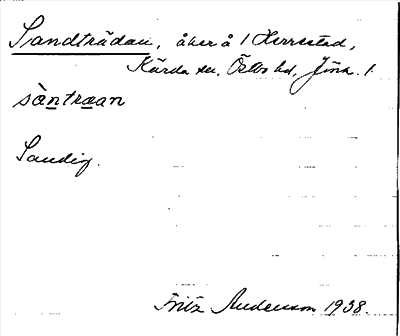 Sandträdan, åker å 1 Herrestad,
Kärda sn, Östbo hd, Jönk. l.
sàntraan
Sandig.
Fritz Anderson 1938.